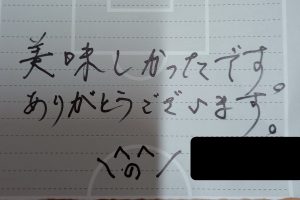 美味しかったです。
ありがとうございます。
＼へのへ／